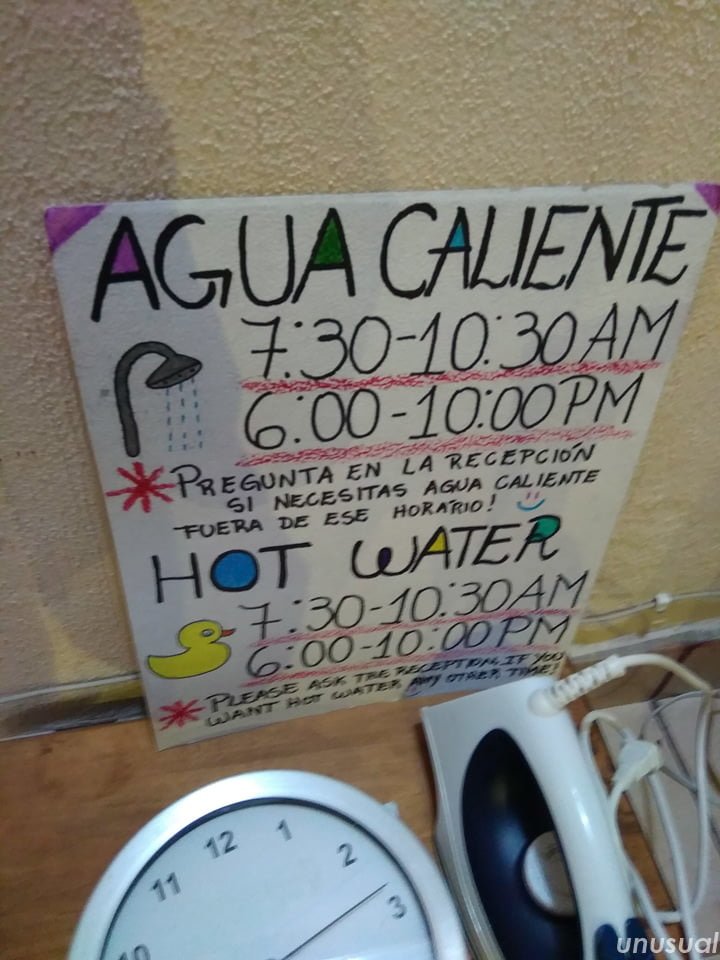 AGUA CALIENTE
7:30-10:30AM
6:00-10:00PM
PREGUNTA EN LA RECEPCIÓN
SI NECESITAS AGUA CALIENTE
FUERA DE ESE HORARIO!
HOT WATER
7:30-10:30AM
6:00-10:00PM
PLEASE ASK THE RECEPTION IF YOU
WANT HOT WATER ANY OTHER TIME!
12
1
2
3
11
10
unusual